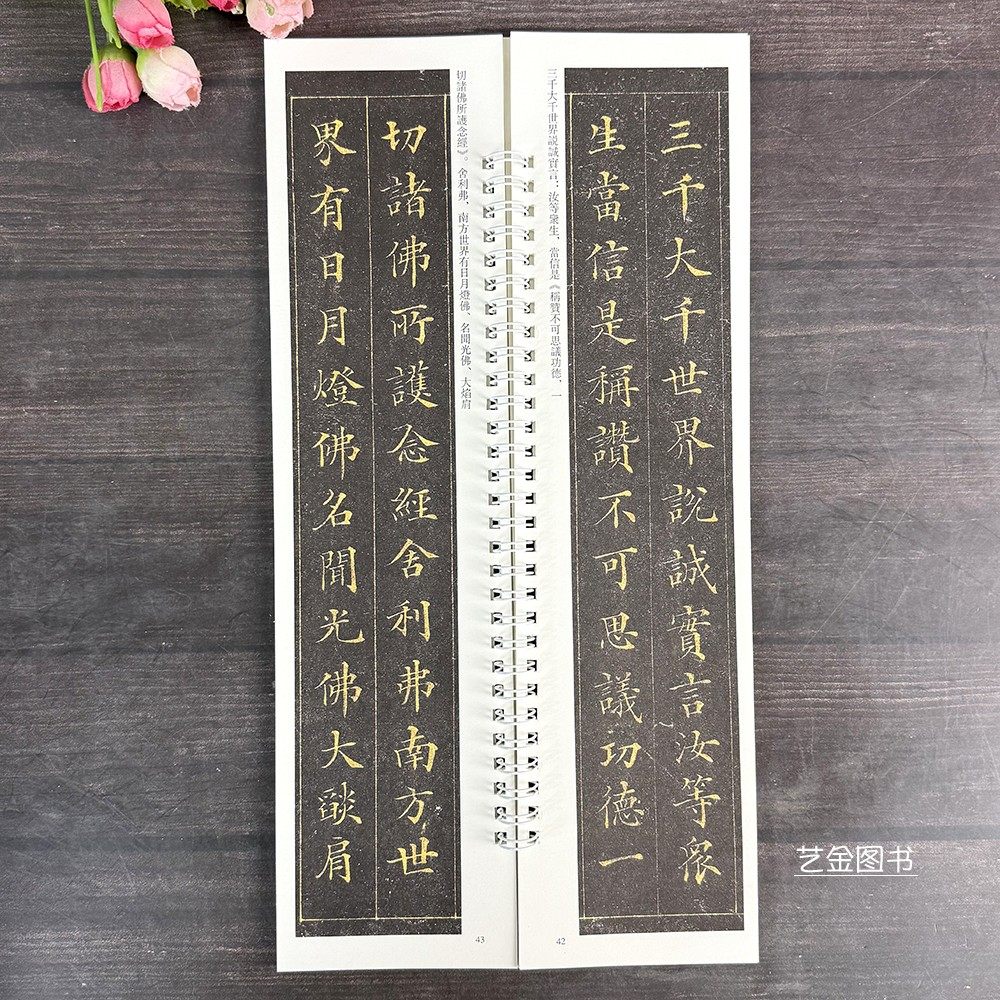 三千大千世界説誠實言汝等衆
生當信是稱讚不可思議功德一
三千大千世界説誠實言：汝等衆生，當信是《稱贊不可思議功德，一
42
切諸佛所護念經》。舍利弗，南方世界有日月燈佛、名聞光佛、大焰肩
切諸佛所護念經舍利弗南方世
界有日月燈佛名聞光佛大燄肩
43
艺金图书